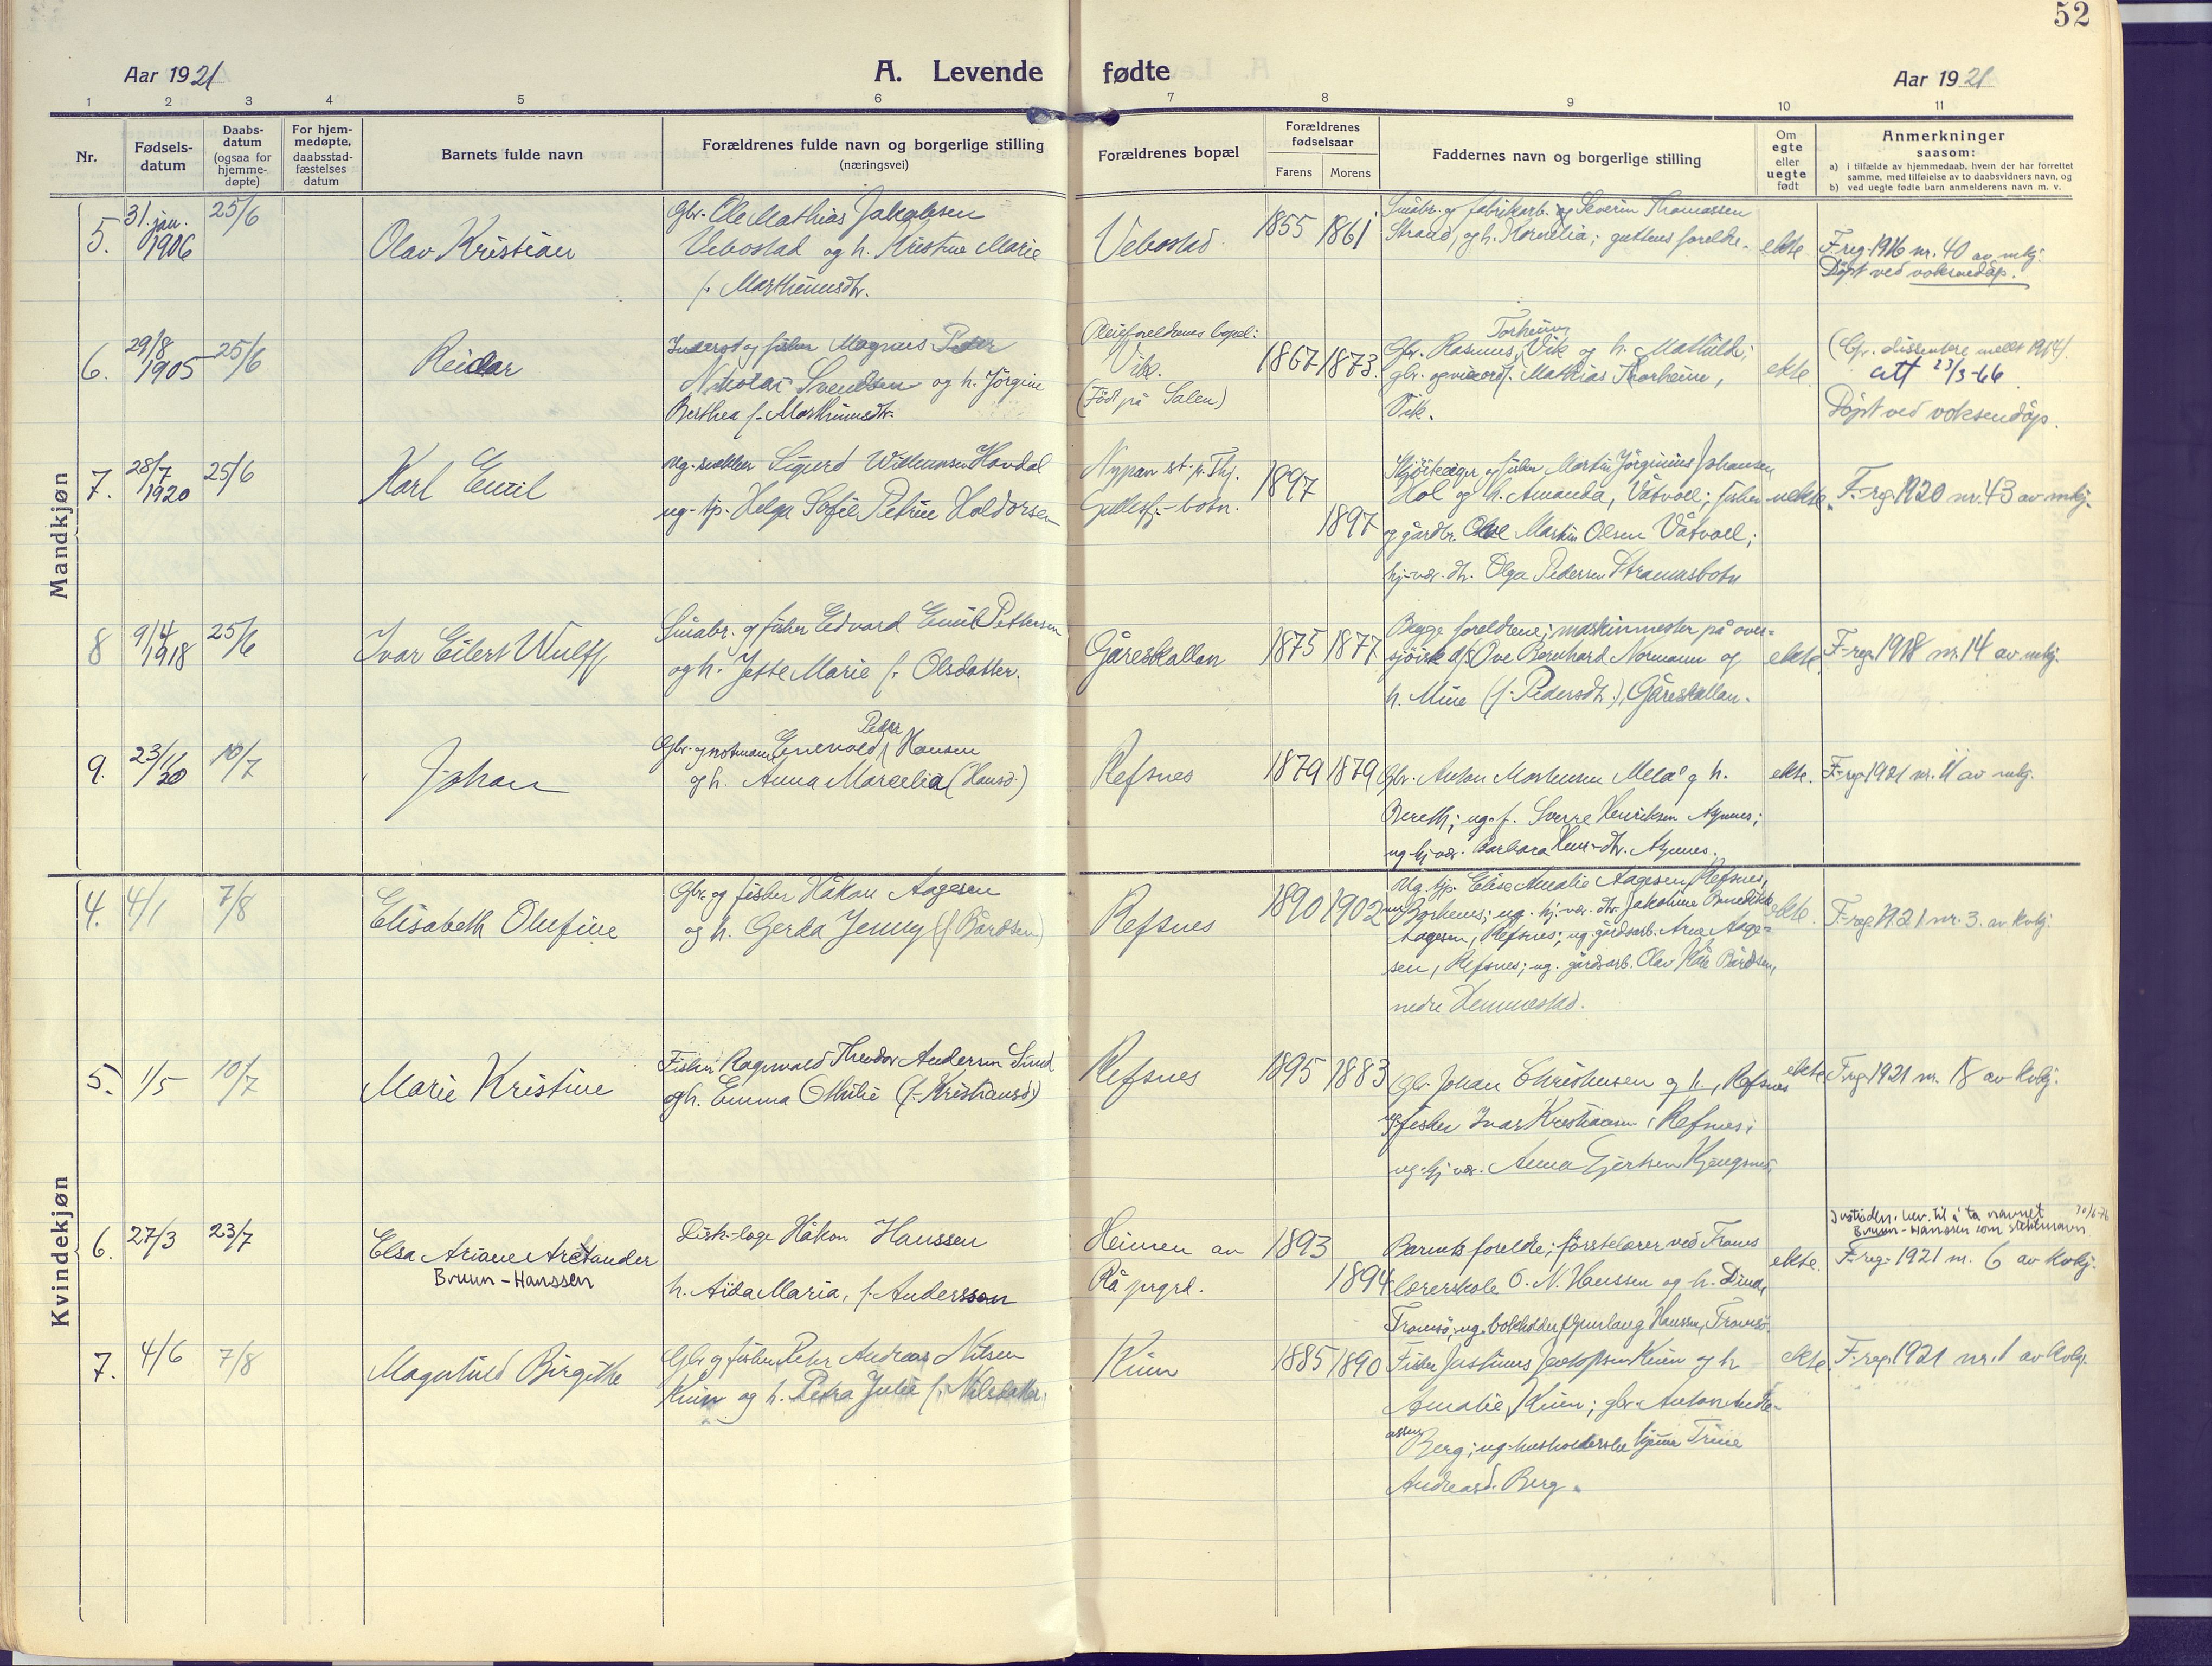 52
Aar 1921
A. Levende fødte
Aar 1921
1 2 3 4 5 6 7 8 9 10 11
Nr.
Fødsels-
datum
Daabs-
datum
(ogsaa for
hjemme-
døpte)
For hjem-
medøpte,
daabsstad-
fæstelses
datum
Barnets fulde navn
Forældrenes fulde navn og borgerlige stilling
(næringsvei)
Forældrenes bopæl
Forældrenes
fødselsaar
Farens Morens
Faddernes navn og borgerlige stilling
Om
egte
eller
uegte
født
Anmerkninger
saasom:
a) i tilfælde av hjemmedaab, hvem der har forrettet
samme, med tilføielse av to daabsvidners navn, og
b) ved uegte fødte barn anmelderens navn m. v.
Mandkjøn
5.
31. jan.
1906
25/6
Olav Kristian
Gbr. Ole Mathias Jakobsen
Vebostad og h. Kristine Marie
f. Marthinusdtr.
Vebostad.
1855 1861
Småbr. og fabrikarb. Severin Thomassen
Strand, og h. Kornelia; guttens foreldre.
ekte.
F.reg. 1916 nr. 40 av mkj.
Døpt ved voksendåp.
6.
29/8
1905
25/6
Reidar
Inderst og fisker Magnus Peder
Nikolai Svendsen og h. Jörgine
Berthea f. Marthinusdtr.
Pleieforeldrenes bopel:
Vik.
(Født på Salen)
1867 1873.
Torheim
Gbr. Rasmus Vik og h. Mathilde;
gbr. og Mathias Thorheim,
Vik.
ekte
(Gr. dissentere mellt 1914).
att 23/3-66
Døpt ved voksendåp.
7.
28/7
1920
25/6
Karl Emil
ug. snekker Sigurd Willumsen Hovdal
ug. tp. Helga Sofie Petrine Haldorsen
Nypan st. p. Thj.
Gullesfj.-botn.
1897
1897
Skjøiteeiger og fisker Martin Jörginius Johansen
Hol og h. Amanda, Våtvoll; fisker
og gårdbr. Martin Olsen Våtvoll;
hj. vær. dtr. Olga Pedersen Straumsbotn
uekte.
F.-reg. 1920 nr. 43 av mkj.
8
9/4
1918
25/6
Ivar Eilert Wulff
Småbr. og fisker Edvard Emil Pettersen
og h. Jette Marie f. Olsdatter.
Gåreskallan
1875 1877
Begge foreldrene; maskinmester på over-
sjöisk d/s Ove Bernhard Normann og
h. Mine (f. Pedersdtr.), Gåreskallan.
ekte.
F.-reg. 1918 nr. 14 av mkj.
9.
23/11
20
10/7
Johan
Peder
Gbr. og notmann Enevold Hansen
og h. Anna Marcelia (Hansd.)
Refsnes
1879 1879
Gbr. Anton Martinsen Melå og h.
Bereth; ug. f. Sverre Henriksen Aynnes;
ug. hj. vær. Barbara Henr.-dtr. Aynnes.
ekte.
F.-reg. 1921 nr. 11 av mkj.
Kvindekjøn
4.
4/1
7/8
Elisabeth Olufine
Gbr. og fisker Håkon Aagesen
og h. Gerda Jenny (f. Bårdsen)
Refsnes
1890 1902
Ug. tjp. Elise Amalie Aagesen, Refsnes,
Borkenes; ug. hj. vær. dtr. Jakobine Benedikte
Aagesen, Refsnes; ug. gårdsarb. Arne Aage-
sen, Refsnes; ug. gårdsarb. Olav Kåre Bårdsen,
nedre Hemmestad.
ekte.
F.-reg. 1921 nr. 3. av kvkj.
5.
1/5
10/7
Marie Kristine
Fisker Ragnvald Theodor Andersen Sund
og h. Emma Othilie (f. Kristiansd.)
Refsnes
1895 1883
Gbr. Johan Christiansen og h., Refsnes
ug. fisker Ivar Kristiansen, Refsnes;
ug. hj. vær. Anna Gjertsen Kjengsnes.
ekte
F.reg. 1921 nr. 18 av kvkj.
6.
27/3
23/7
Elsa Ariane Arctander
Bruun-Hanssen
Distr.-læge Håkon Hanssen
h. Aïda Maria, f. Andersson
Heimen an
Rå prgrd.
1893
1894
Barnets foreldre; førstelærer ved Troms
lærerskole O. N. Hanssen og h. Dina,
Tromsö; ug. bokholder Gunlaug Hanssen, Tromsö.
ekte.
Justisdep. bev. til å ta navnet 10/6-76
Bruun-Hanssen som slektsnavn
F.-reg. 1921 nr. 6 av kvkj.
7.
4/6
7/8
Magnhild Birgitte
Gbr. og fisker Peder Andreas Nilsen
Kinn og h. Petra Julie f. Nilsdatter.
Kinn
1885 1890
Fisker Justinus Jentoftsen Kinn og h.
Amalie, Kinn; gbr. Anton Andre-
assen
Berg; ug. husholderske Trine
Andreasd. Berg.
ekte
F.-reg. 1921 nr. 1 av kvkj.